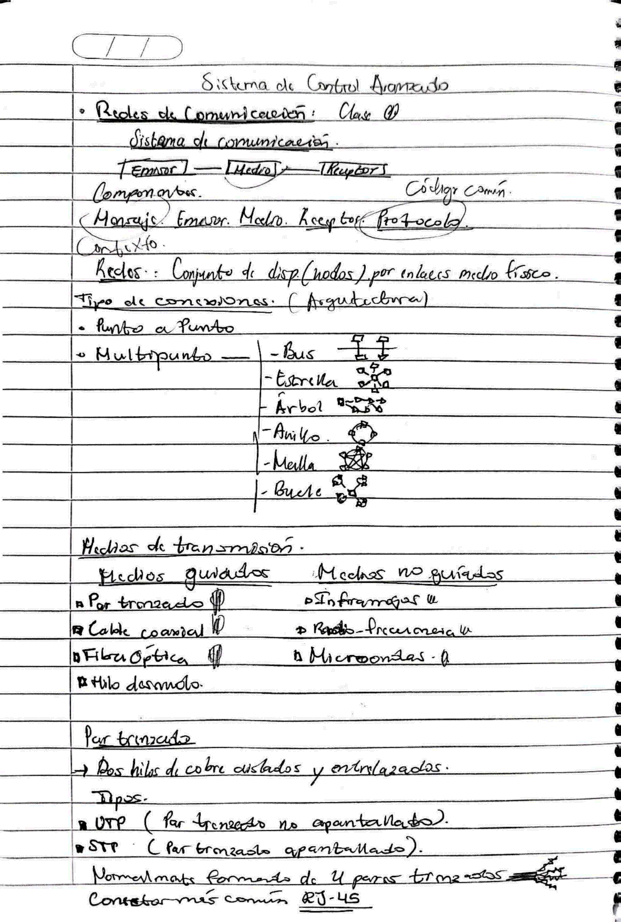 / /
Sistema de Control Avanzado
• Redes de Comunicación: Clase ①
Sistema de comunicación.
Emisor — Medio — Receptor
Componentes. Código común.
Mensaje. Emisor. Medio. Receptor. Protocolo.
Contexto.
Redes: Conjunto de disp (nodos) por enlaces medio físico.
Tipo de conexiones. (Arquitectura)
• Punto a Punto
• Multipunto — - Bus
- Estrella
- Árbol
- Anillo.
- Malla
- Bucle
Medios de transmisión.
Medios guiados Medios no guiados
Par trenzado Infrarrojos
Cable coaxial Radio-frecuencia
Fibra Óptica Microondas.
Hilo desnudo.
Par trenzado
→ Dos hilos de cobre aislados y entrelazados.
Tipos.
UTP (Par trenzado no apantallado).
STP (Par trenzado apantallado).
Normalmate formado de 4 pares trenzados
más común RJ-45